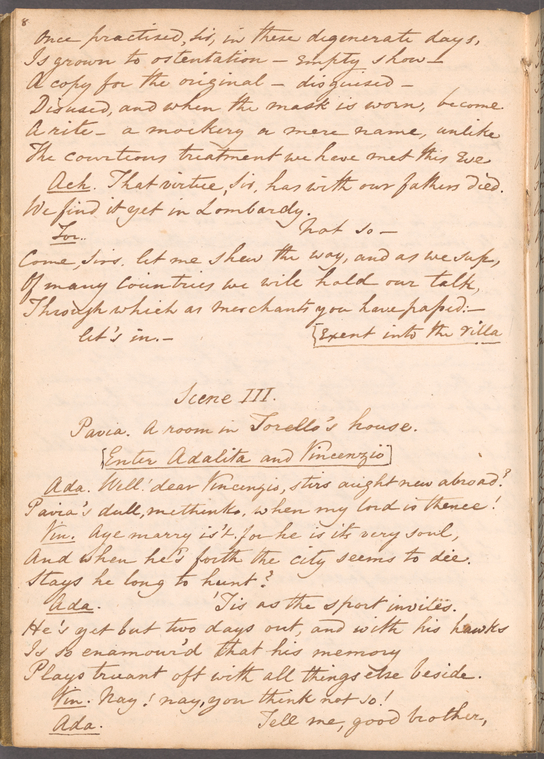 8
Once practised, Sir, in these degenerate days,
Is grown to ostentation – empty show –
A copy for the original – disguised –
Disused, and when the mask is worn, become
A rite – a mockery a mere name, unlike
The courtious treatment we have met this Eve
Ach. That virtue, Sir, has with our fathers died.
We find it yet in Lombardy.
Tor. Not so –
Come, Sirs. let me shew the way, and as we sup,
Of many Countries we wile hold our talk,
Through which as merchants you have passed: –
let's in. –
[Exent into the Villa
Scene III.
Pavia. A room in Torello's house.
[Enter Adalita and Vincenzio]
Ada. Well! dear Vincenzio, stirs aught new abroad?
Pavia's dull, methinks, when my lord is thence!
Vin. Aye marry is't, for he is its very soul,
And when he's forth the city seems to die.
Stays he long to hunt?
Ada. 'Tis as the sport invites.
He's yet but two days out, and with his hawks
Is so enamour'd that his memory
Plays truant off with all things else beside.
Vin. Nay! nay, you think not so!
Ada. Tell me, good brother,